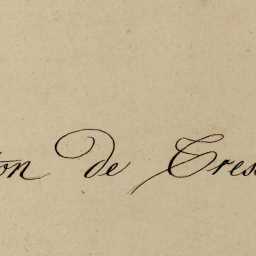 on de Cres